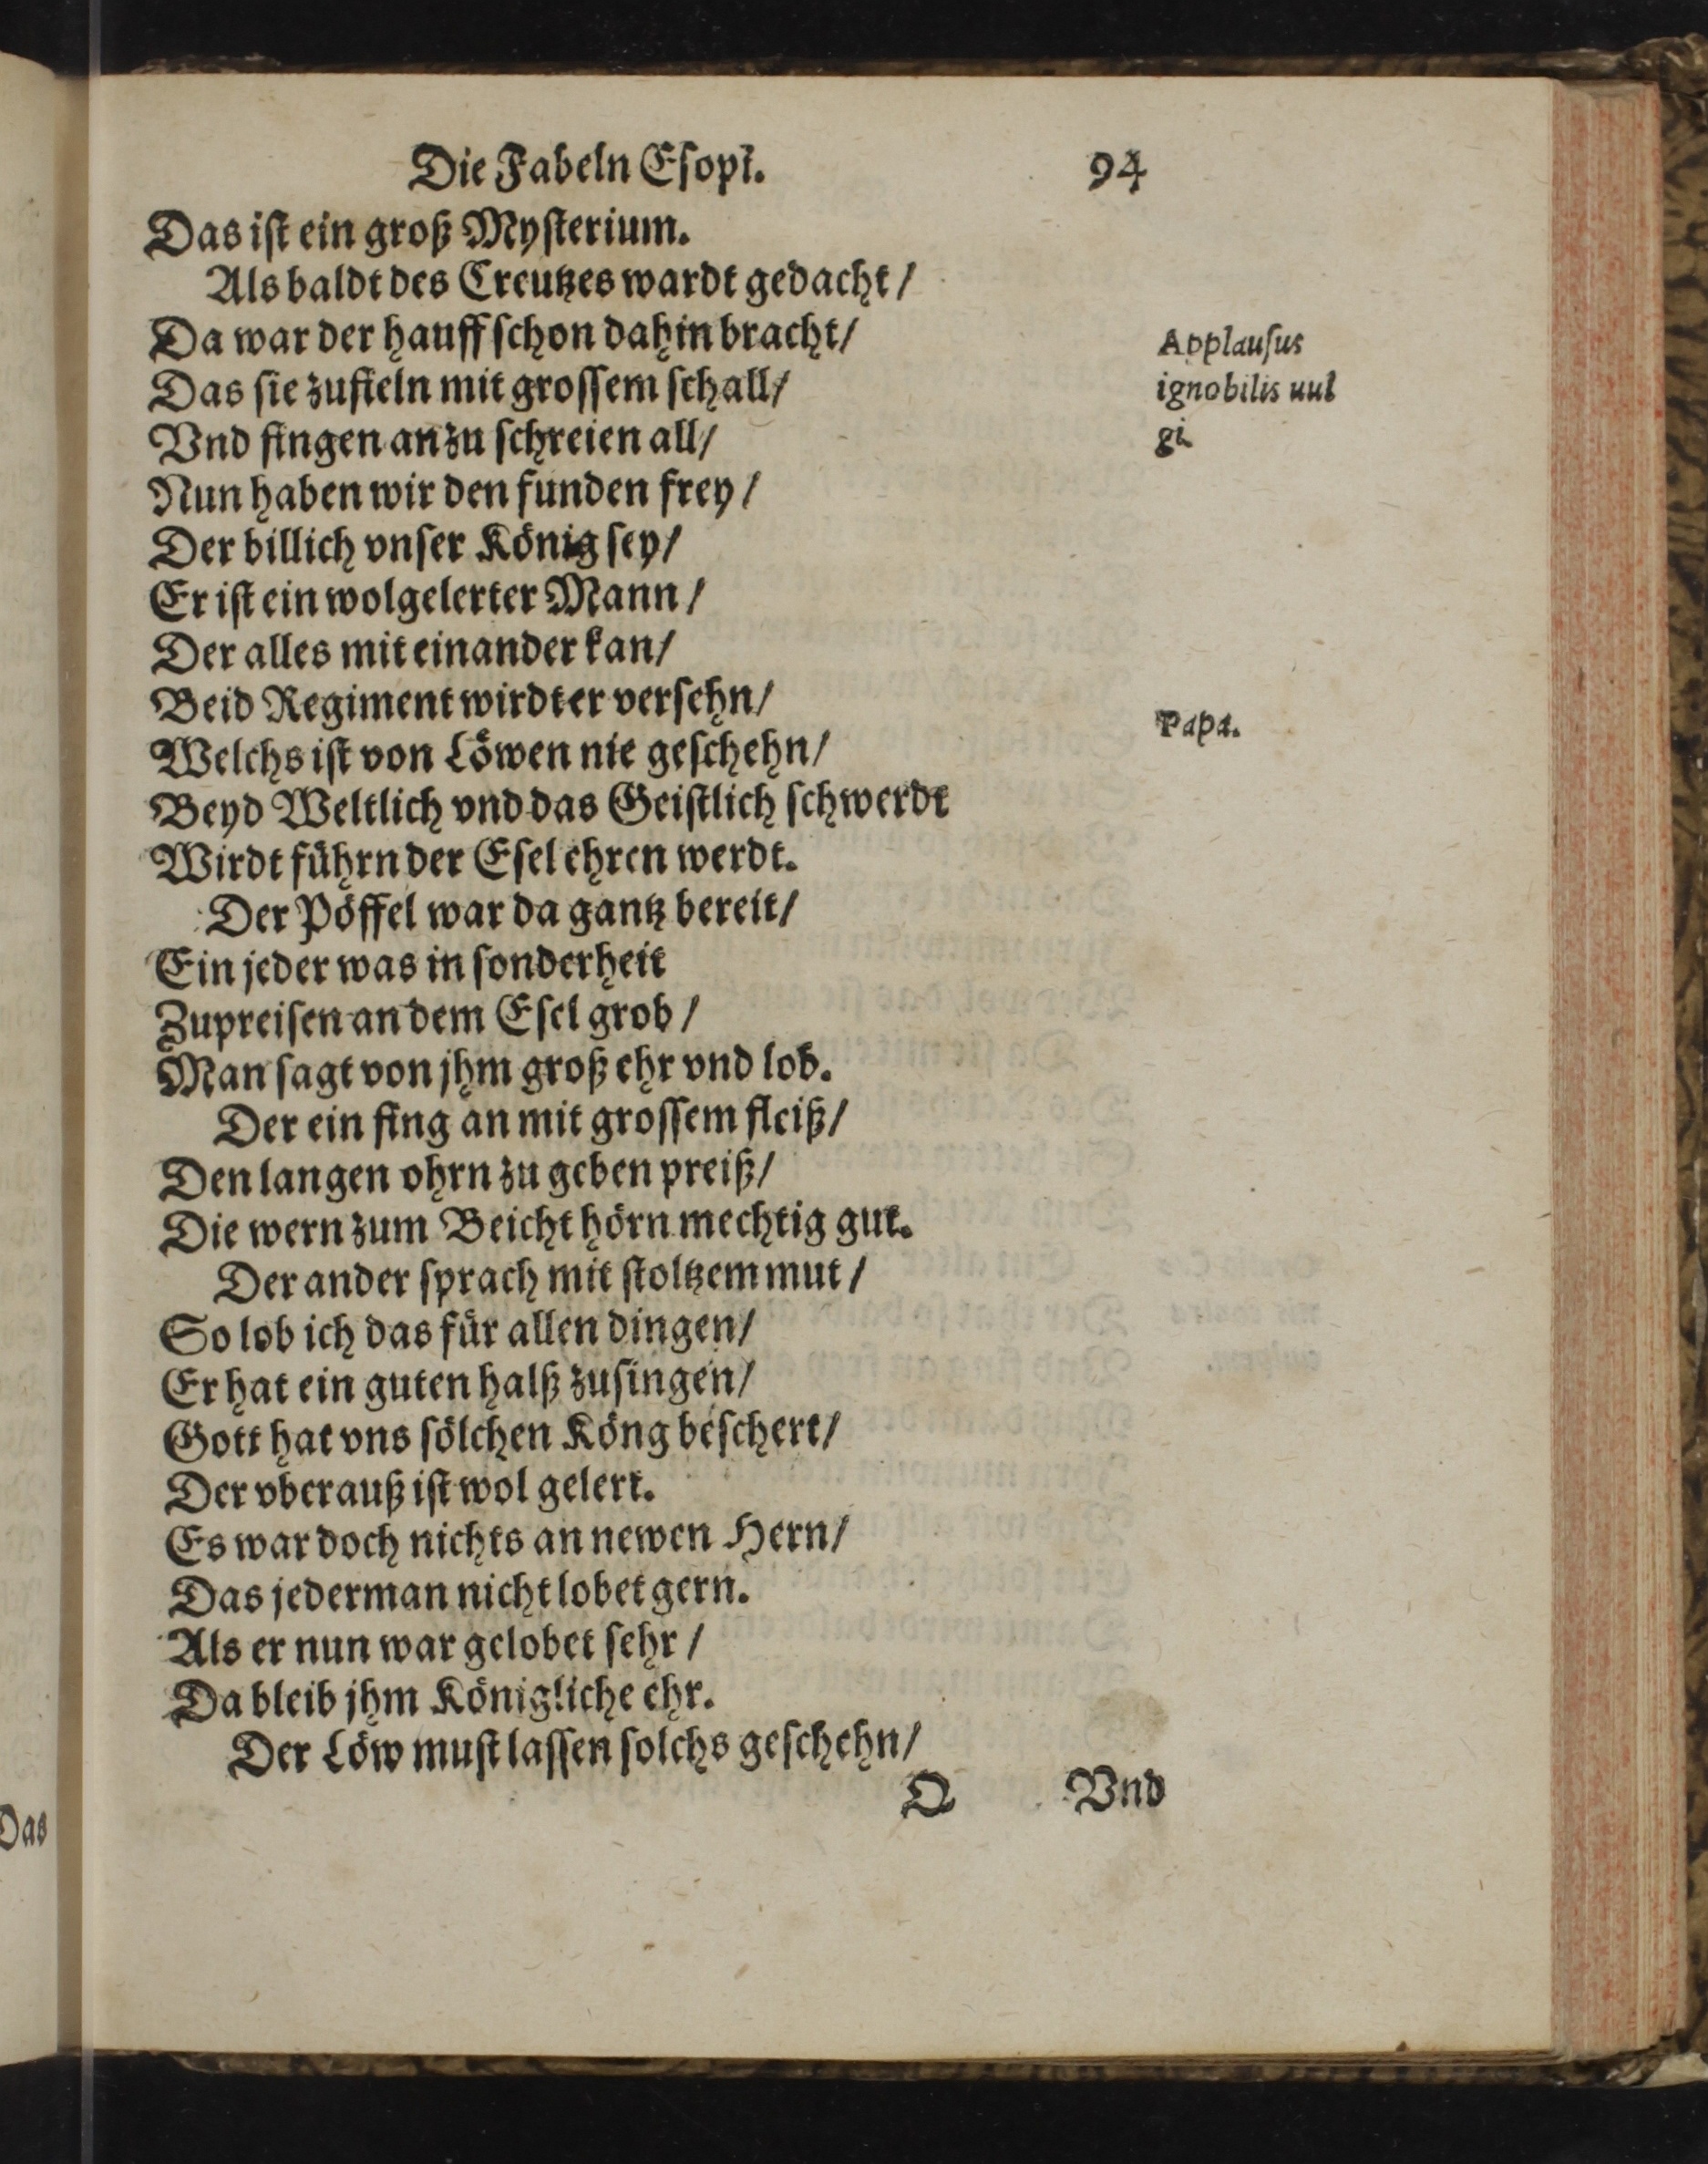 Die Fabeln Esopi. 94
Das iſt ein groß Myſterium.
Als baldt des Creutzes wardt gedacht /
Da war der hauff ſchon dahin bracht/
Applauſus
Das ſie zufieln mit groſſem ſchall/
ignobilis uul
Vnd fingen an zu ſchreien all/
gi.
Nun haben wir den funden frey /
Der billich vnſer König ſey/
Er iſt ein wolgelerter Mann /
Der alles mit einander kan/
Beid Regiment wirdt er verſehn/
Papa.
Welchs iſt von Löwen nie geſchehn/
Beyd Weltlich vnd das Geiſtlich ſchwerdt
Wirdt führn der Eſel ehren werdt.
Der Pöffel war da gantz bereit/
Ein jeder was in ſonderheit
Zupreiſen an dem Eſel grob /
Man ſagt von jhm groß ehr vnd lob.
Der ein fing an mit groſſem fleiß/
Den langen ohrn zu geben preiß/
Die wern zum Beicht hörn mechtig gut.
Der ander ſprach mit ſtoltzem mut /
So lob ich das für allen dingen/
Er hat ein guten halß zuſingen/
Gott hat vns ſölchen Köng beſchert/
Der vberauß iſt wol gelert.
Es war doch nichts an newen Hern/
Das jederman nicht lobet gern.
Als er nun war gelobet ſehr /
Da bleib jhm Königliche ehr.
Der Löw muſt laſſen ſolchs geſchehn/
Q Vnd
Das